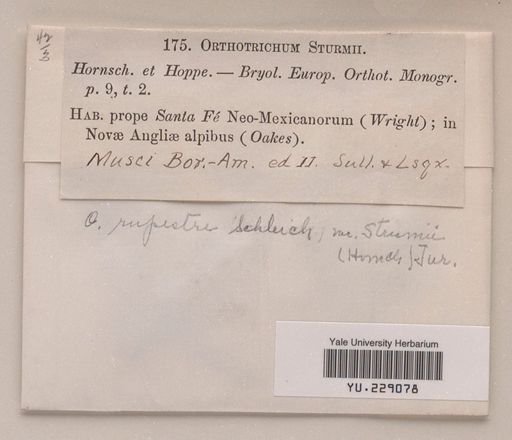 42
3
175. ORTHOTRICHUM STURMII.
Hornsch. et Hoppe. — Bryol. Europ. Orthot. Monogr.
p. 9, t. 2.
HAB. prope Santa Fé Neo-Mexicanorum (Wright); in
Novæ Angliæ alpibus (Oakes).
Musci Bor.-Am. ed II. Sull. & Lsqx.
O. rupestre Schleich, var. Sturmii
(Hornsch) Jur.
Yale University Herbarium
YU.229078